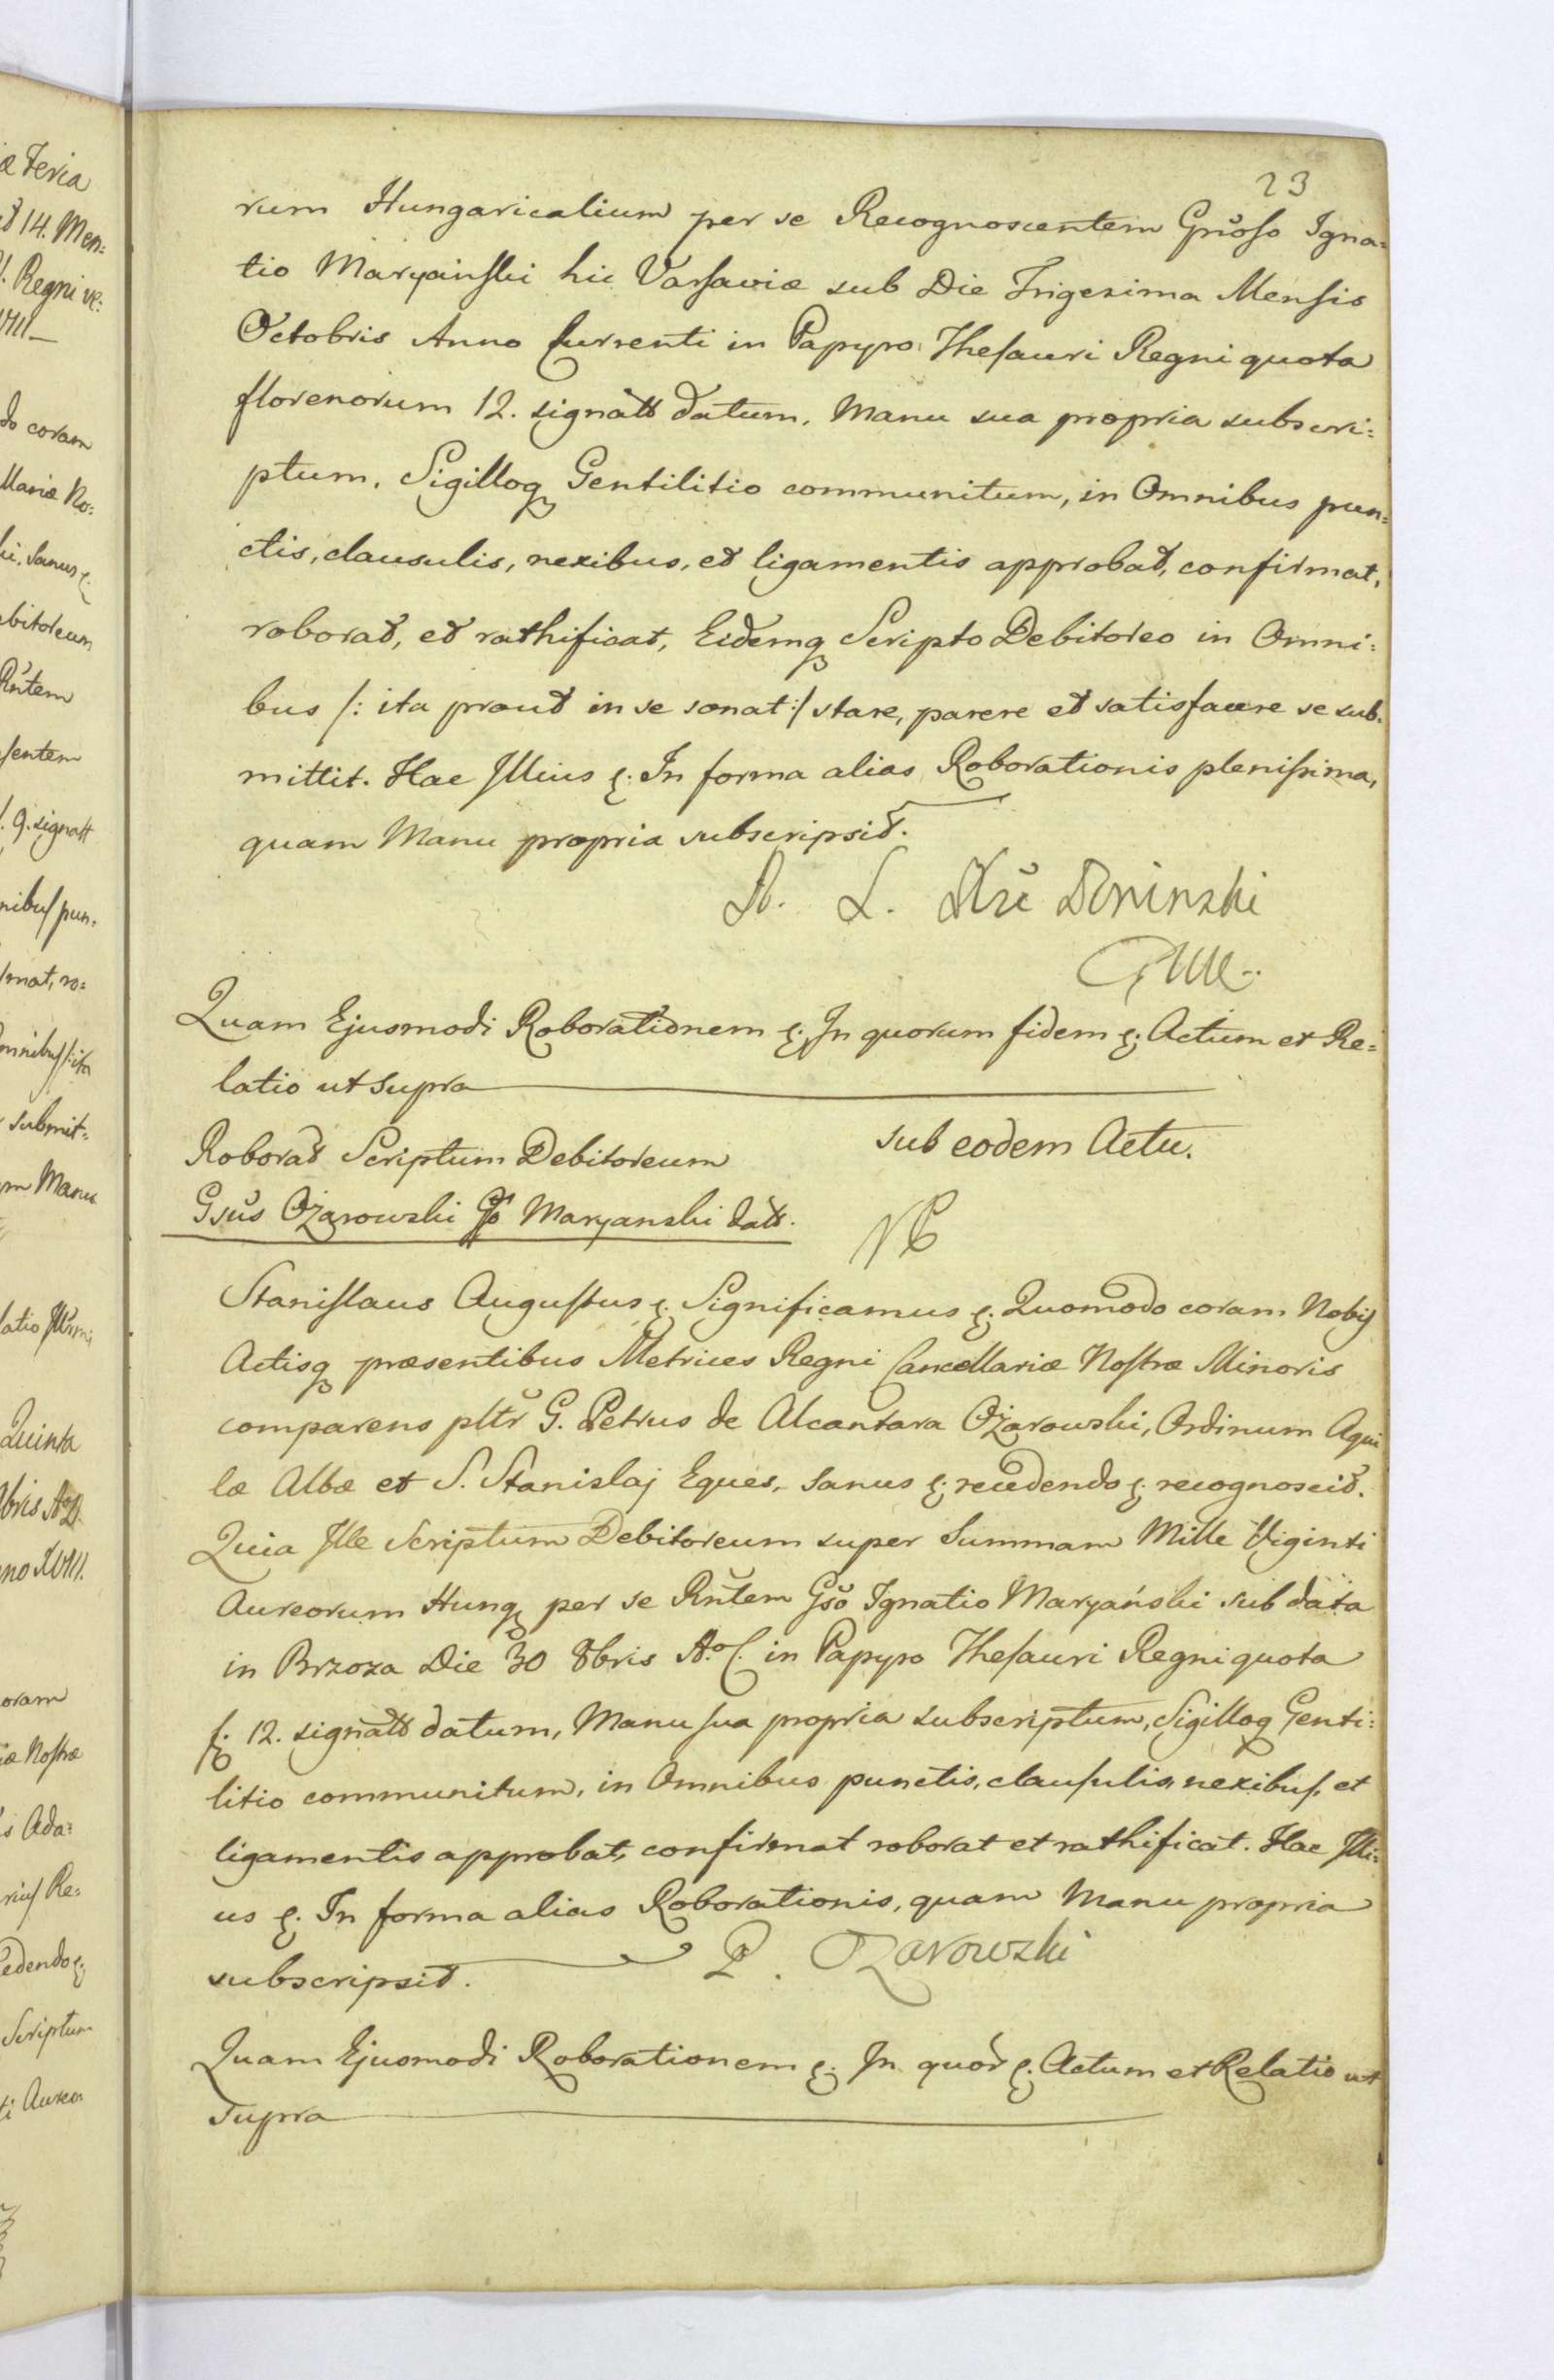 23
rum Hungaricalium per se Recognoscentem Gnŏso Igna=
tio Maryański hic Varsaviæ sub Die Trigesima Mensis
Octobris Anno Currenti in Papyro Thesauri Regni quota
florenorum 12. signatt datum, Manu sua propria subscri=
ptum, Sigilloq Gentilitio communitum, in Omnibus pun=
ctis, clausulis, nexibus, et ligamentis approbat, confirmat,
roborat, et rathificat, Eidemq Scripto Debitoreo in Omni=
bus /: ita prout in se sonat :/ stare, parere et satisfacere se sub=
mittit. Hac Illius ę. In forma alias Roborationis plenissima,
quam Manu propria subscripsit.
A. L. Xże Poninski
Quam Ejusmodi Roborationem ę. In quorum fidem ę. Actum et Re=
latio ut supra
sub eodem Actu.
Roborat Scriptum Debitoreum
Gsŭs Ożarowski Gso Maryanski datt.
Stanislaus Augustus ę. Significamus ę. Quomodo coram Nobis
Actisq præsentibus Metrices Regni Cancellariæ Nostræ Minoris
comparens pltr̆ G. Petrus de Alcantara Ożarowski, Ordinum Aqui
læ Albæ et S. Stanislaj Eques, Sanus ę. recedendo ę. recognoscit.
Quia Ille Scriptum Debitoreum super Summam Mille Viginti
Aureorum Hung per se Rn̆tem Gsŏ Ignatio Maryański sub data
in Brzoza Die 30 8bris A.o C. in Papyro Thesauri Regni quota
f. 12. signatt datum, Manu sua propria subscriptum, Sigilloq Genti=
litio communitum, in Omnibus punctis, clausulis, nexibus, et
ligamentis approbat, confirmat roborat et rathificat. Hac Illi=
us ę. In forma alias Roborationis, quam Manu propria
subscripsit.
P. Ożarowski
Quam Ejusmodi Roborationem ę. In quor ę. Actum et Relatio ut
supra